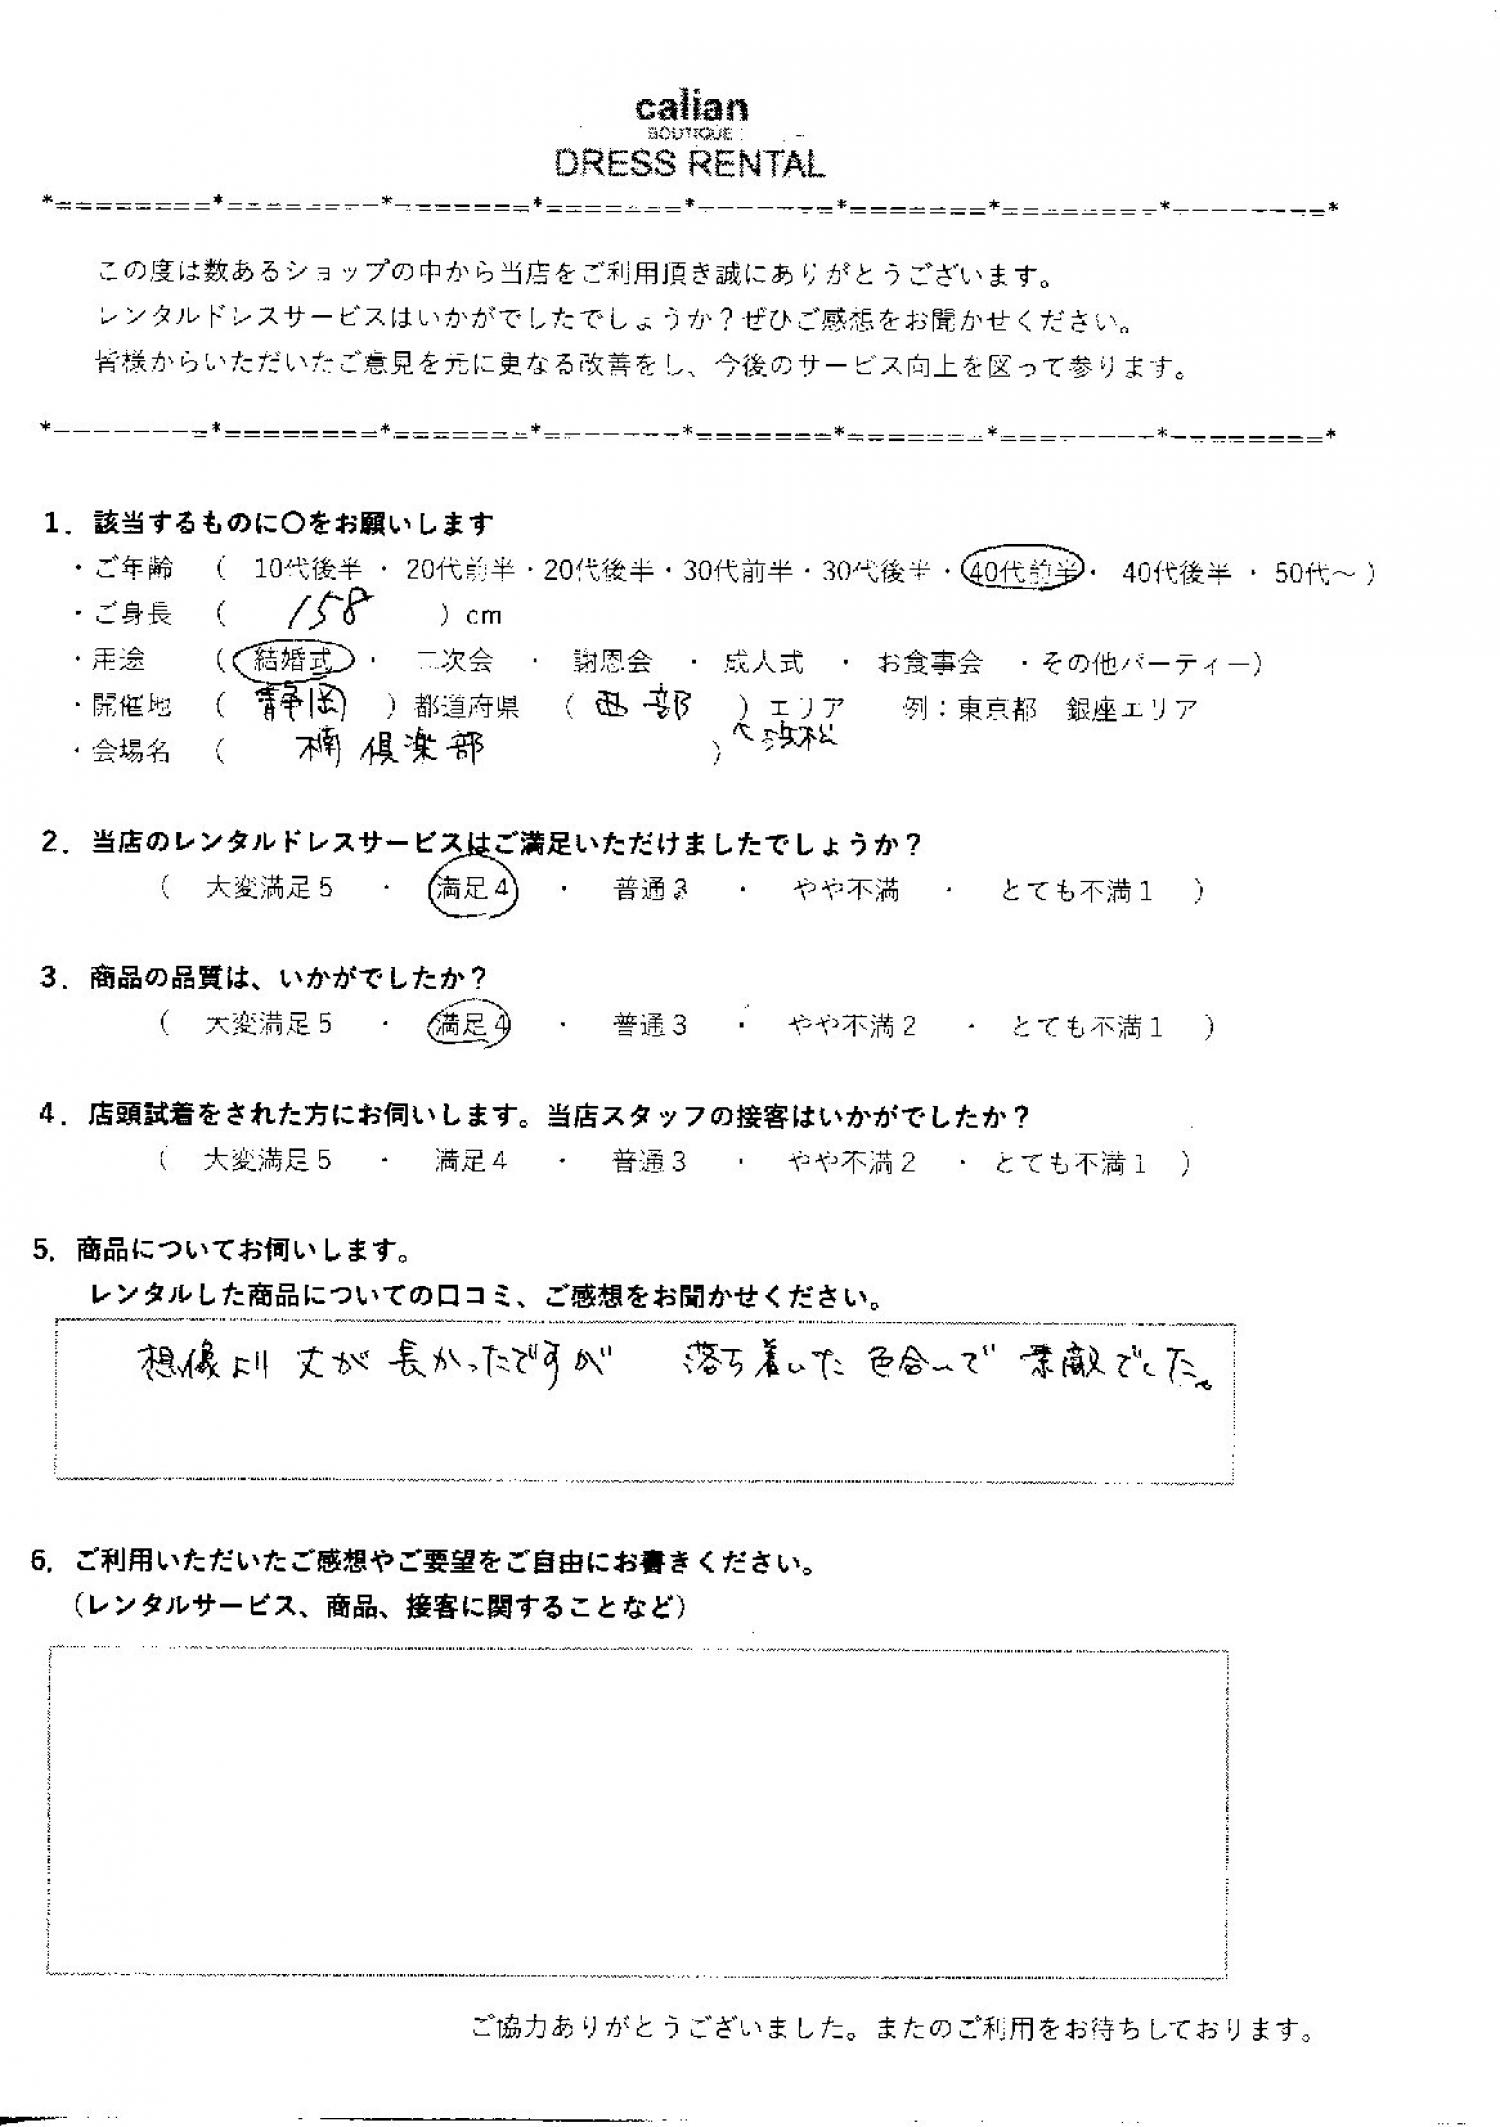 calian
BOUTIQUE
DRESS RENTAL
*========*========*=======*=======*=======*=======*========*========*
この度は数あるショップの中から当店をご利用頂き誠にありがとうございます。
レンタルドレスサービスはいかがでしたでしょうか？ぜひご感想をお聞かせください。
皆様からいただいたご意見を元に更なる改善をし、今後のサービス向上を図って参ります。
*========*========*=======*=======*=======*=======*========*========*
1．該当するものに〇をお願いします
・ご年齢 （ 10代後半 ・ 20代前半・20代後半・30代前半・30代後半・40代前半・ 40代後半 ・ 50代～ ）
・ご身長 （ 158 ）cm
・用途 （ 結婚式 ・ 二次会 ・ 謝恩会 ・ 成人式 ・ お食事会 ・その他パーティー）
・開催地 （ 静岡 ）都道府県 （ 西部 ）エリア 例：東京都 銀座エリア
・会場名 （ 楠倶楽部 ） 浜松
2．当店のレンタルドレスサービスはご満足いただけましたでしょうか？
（ 大変満足５ ・ 満足４ ・ 普通３ ・ やや不満 ・ とても不満１ ）
3．商品の品質は、いかがでしたか？
（ 大変満足５ ・ 満足４ ・ 普通３ ・ やや不満２ ・ とても不満１ ）
4．店頭試着をされた方にお伺いします。当店スタッフの接客はいかがでしたか？
（ 大変満足５ ・ 満足４ ・ 普通３ ・ やや不満２ ・ とても不満１ ）
5．商品についてお伺いします。
レンタルした商品についての口コミ、ご感想をお聞かせください。
想像より丈が長かったですが 落ち着いた色合いで素敵でした。
6．ご利用いただいたご感想やご要望をご自由にお書きください。
（レンタルサービス、商品、接客に関することなど）
ご協力ありがとうございました。またのご利用をお待ちしております。